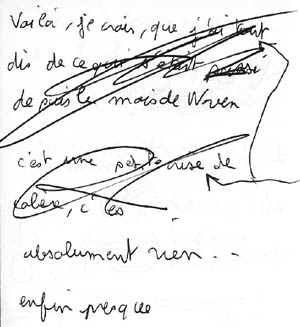 Voilà, je crois, que j'ai tout
dis de ce qui s'était passé
depuis le mois de
c'est une petite mise de
, c'es
absolument rien...
enfin presque